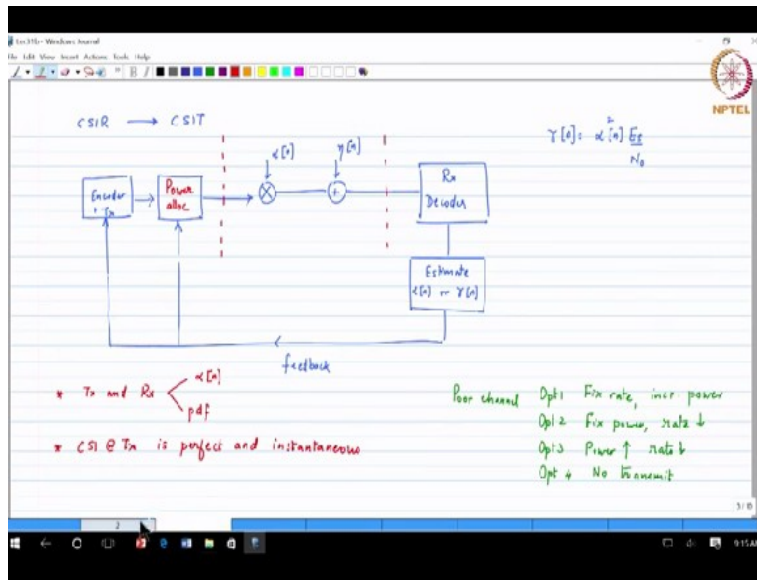 Lec31b - Windows Journal
File Edit View Insert Actions Tools Help
NPTEL
CSIR → CSIT
α[n]
η[n]
γ[n] = α²[n] Es
N0
Encoder
+ Tx
Power
alloc
Rx
Decoder
Estimate
α[n] or γ[n]
feedback
* Tx and Rx
α[n]
pdf
* CSI @ Tx is perfect and instantaneous
Poor channel
Opt 1 Fix rate, incr power
Opt 2 Fix power, rate ↓
Opt 3 Power ↑ rate ↓
Opt 4 No transmit
2
9:15 AM